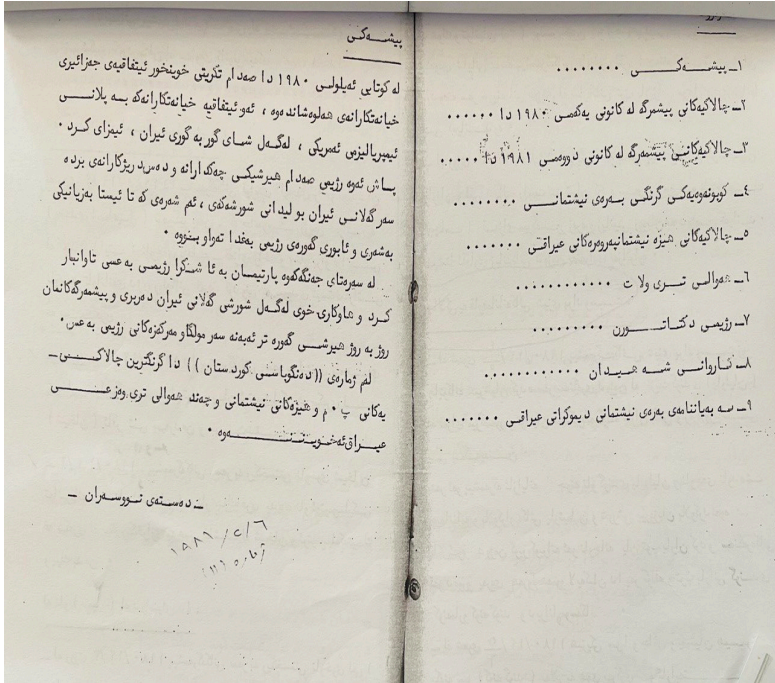 ١ــ پیشـــەکـــی ٠٠٠٠٠٠٠٠
٢ــ چالاکیەکانی پیشمرگە لە کانونی یەکەمی ١٩٨٠ دا ٠٠٠٠٠٠
٣ــ چالاکیەکانی پیشمەرگە لە کانونی دووەمی ١٩٨١ دا ٠٠٠٠٠
٤ــ کوبونەوەیەکی گرنگی بــەرەی نیشتمانــی ٠٠٠٠٠٠٠٠
٥ــ چالاکیەکانی هیزە نیشتمانپەروەرەکانی عیراقی ٠٠٠٠٠٠٠
٦ــ هەوالــی تــری ولا ت ٠٠٠٠٠٠٠٠٠٠٠٠
٧ــ رژیمی دکتــاتــورن ٠٠٠٠٠٠٠٠٠
٨ــ کــاروانــی شــە هیــدان ٠٠٠٠٠٠٠٠٠٠٠
٩ــ سە بەیاننامەی بەرەی نیشتمانی دیموکراتی عیراقی ٠٠٠٠٠٠٠
پیشــەکی
لە کوتایی ئەیلولی ١٩٨٠ دا صەدام تکریتی خوینخور ئیتفاقیەی جەزائیری
خیانەتکارانەی هەلوەشاندەوە ، ئەو ئیتفاقیە خیانەتکارانەکە بــە پلانــی
ئیمپریالیزمی ئەمریکی ، لەگــەل شــای گور بەگوری ئیران ، ئیمزای کرد ٠
پــاش ئەوە رژیمی صەدام هیرشیکی چەکدارانە و دەسدریژکارانەی بردە
سەر گەلانــی ئیران بو لیدانی شورشەکەی ، ئەم شەرەی کە تا ئیستا بەزیانیکی
بەشەری و ئابوری گەورەی رژیمی بەغدا تەواو بــووە ٠
لە سەرەتای جەنگەکەوە پارتیمــان بە ئا شــکرا رژیمــی بەعسی تاوانبار
کرد و هاوکاری خوی لەگــەل شورشی گەلانی ئیران دەربری و پیشمەرگەکانمان
روژ بە روژ هیرشــی گەورە تر ئەبەنە سەر مولگاو مەرکەزەکانی رژیمی بەعس ٠
لەم ژمارەی (( دەنگوباســی کوردستان )) دا گرنگترین چالاکــی ــ
یەکانی پ ٠ م و هیزەکانی نیشتمانی و چەند هەوالی تری وەزعــی
عیــراق ئەخوینــنــەوە ٠
ــ دەستەی نــووســەران ــ
١٩٨١/٢/٦